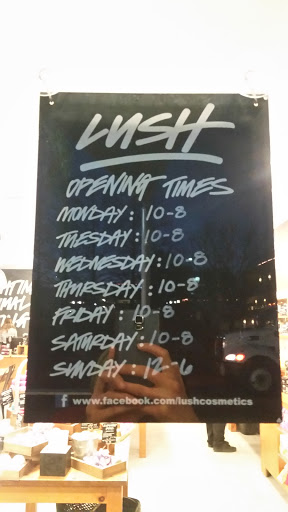 LUSH
OPENING TIMES
MONDAY: 10-8
TUESDAY: 10-8
WEDNESDAY: 10-8
THURSDAY: 10-8
FRIDAY: 10-8
SATURDAY: 10-8
SUNDAY: 12-6
f www.facebook.com/lushcosmetics